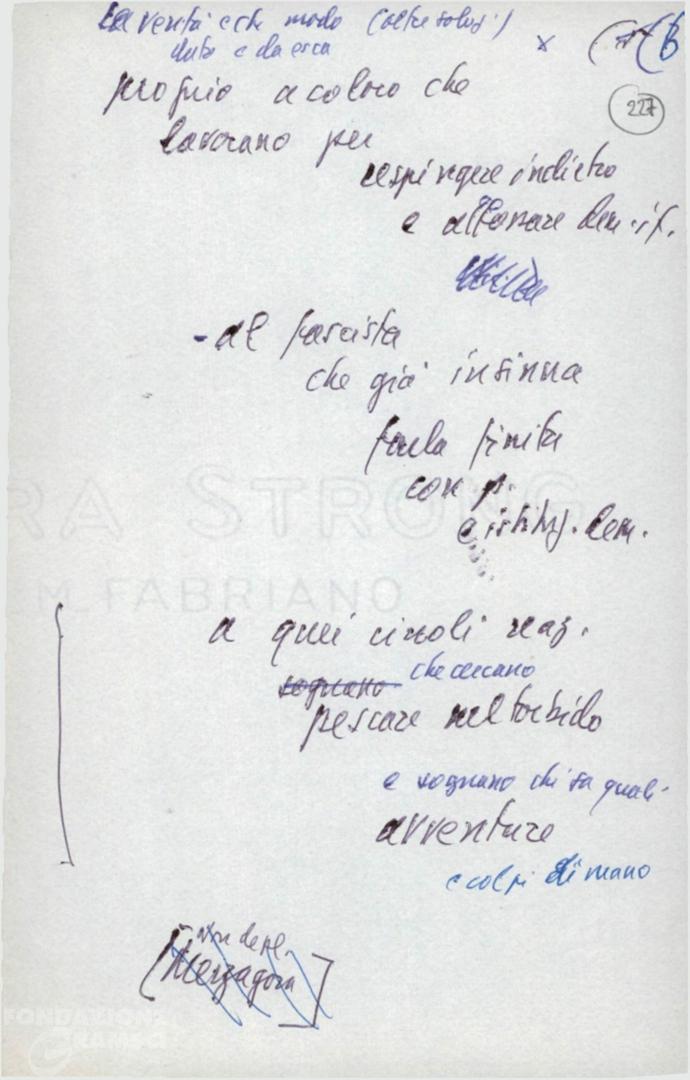 La verità è che modo (oltre soluz.)
aiuto e da esca
(6
227
proprio a coloro che
lavorano per
respingere indietro
e affossare dem. it.
- al fascista
che già insinua
farla finita
con p.
e istituz. dem.
RA STRONG
M_FABRIANO
a quei circoli reaz.
sognano che cercano
pescare nel torbido
e sognano chi sa quali
avventure
e colpi di mano
[Merzagora]
FONDAZIONE
GRAMSCI